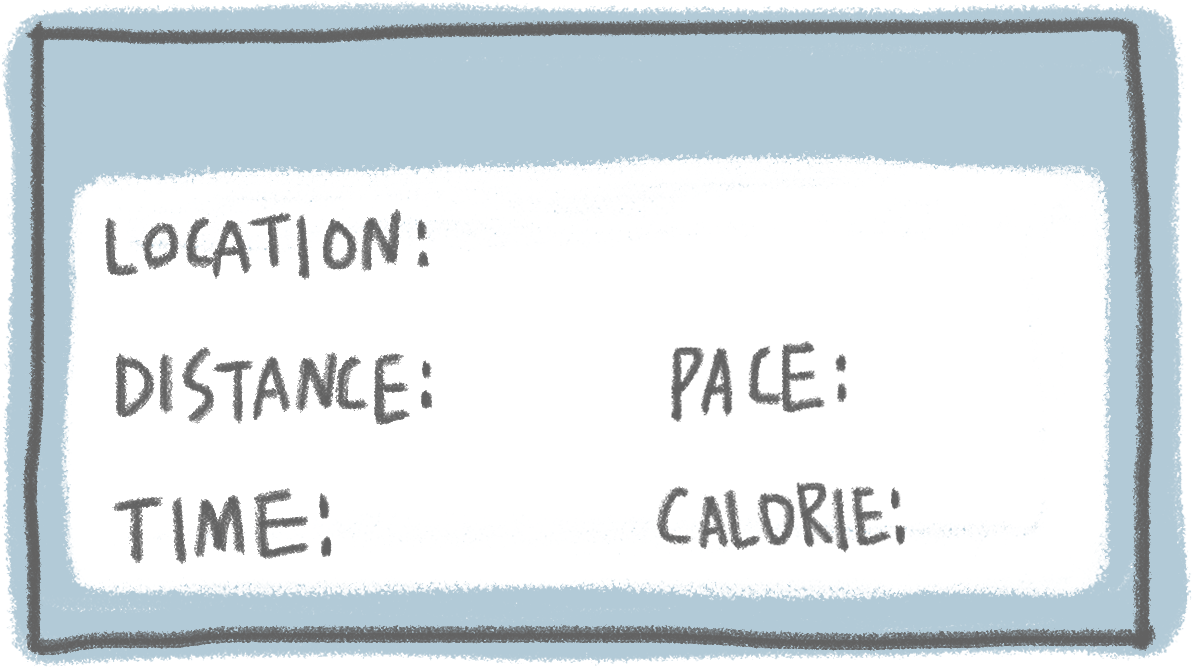 LOCATION:
DISTANCE: PACE:
TIME: CALORIE: